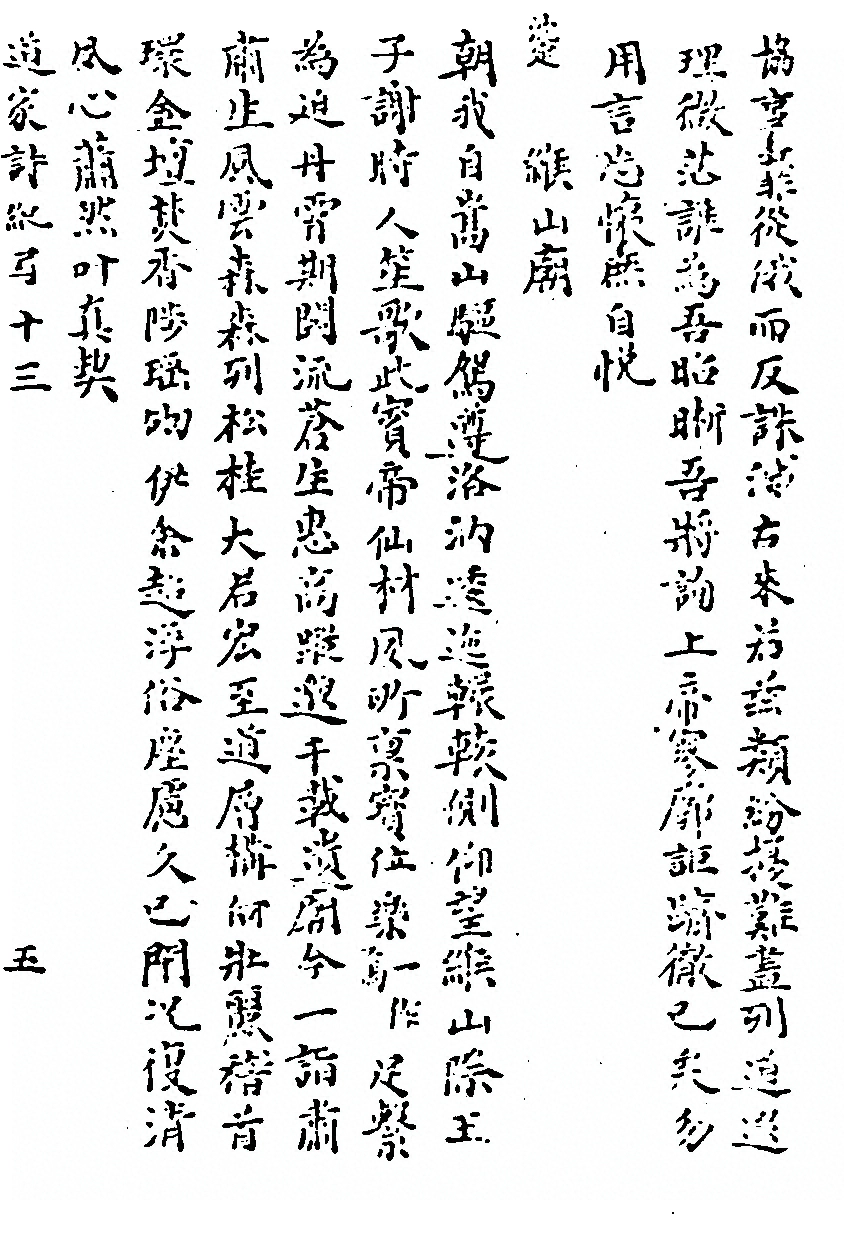 協 從俄而反誅滅古來若茲類紛擾難盡列道邈
理微茫誰為吾昭晰吾將詢上帝寥廓詎躋徹已矣勿
用言忘懷庶自悅
緱山廟
朝我自嵩山驅駕遵洛汭逶迤轘轅側仰望緱山際王
子謝時人笙歌此賓帝仙材夙所稟寶位樂焉一作足繫
為迫丹霄期闕流蒼生惠高蹤邈千載遺廟今一詣肅
肅止風雲森森列松桂大君宏至道層構何壯麗稽首
環金壇焚香陟瑤砌伊余超浮俗塵慮久已閉況復清
夙心蕭然叶真契
道家詩紀弓十三 五